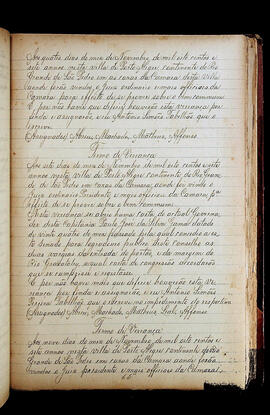 Aos quatro dias do mez de Novembro de mil oito centos e
oito annos nesta villa de Porto Alegre continente do Rio
Grande de São Pedro em as casas da Camara desta Villa
onde forão vindos o Juiz ordinario e mais officiaes da
Camara para effeito de se prover sobre o bem commum.
E por não haver que deferir houverão esta vereança por
finda e assignarão eu Antonio Simões Tabellião que o
escrevi.
(Assignados) Abreu, Machado, Matheus, Affonso.
Termo de Vereança
Aos oito dias do mez de Novembro de mil oito centos e oito
annos nesta villa de Porto Alegre continente do Rio Grande
de São Pedro em casas da Camara, onde foi vindo o
Juiz ordinario Presidente e mais officiaes da Camara pª
effeito de se prover o bem commum.
Nesta vereança se abrio huma carta do actual Governa-
dor desta Capitania Paulo José da Silva Gama datada
de vinte quatro do mez
este Senado para logradouro publico deste conselho as
duas vargas da entrada do portão, e da margem do
que se cumprisse e registasse.
E por não haver mais que deferir houverão esta ve-
reança por finda e assignarão eu Antonio Simões
Pereira Tabellião que o escrevi no impedimento do respectivo
(Assignados) Abreu, Machado, Matheus, Leal, Affonso.
Termo de Vereança
Aos nove dias do mez de Novembro de mil oito centos e
oito annos nesta villa de Porto Alegre continente do Rio
Grande de São Pedro em casas da Camara aonde forão
vindos o Juiz presidente e mais officiaes da Camara